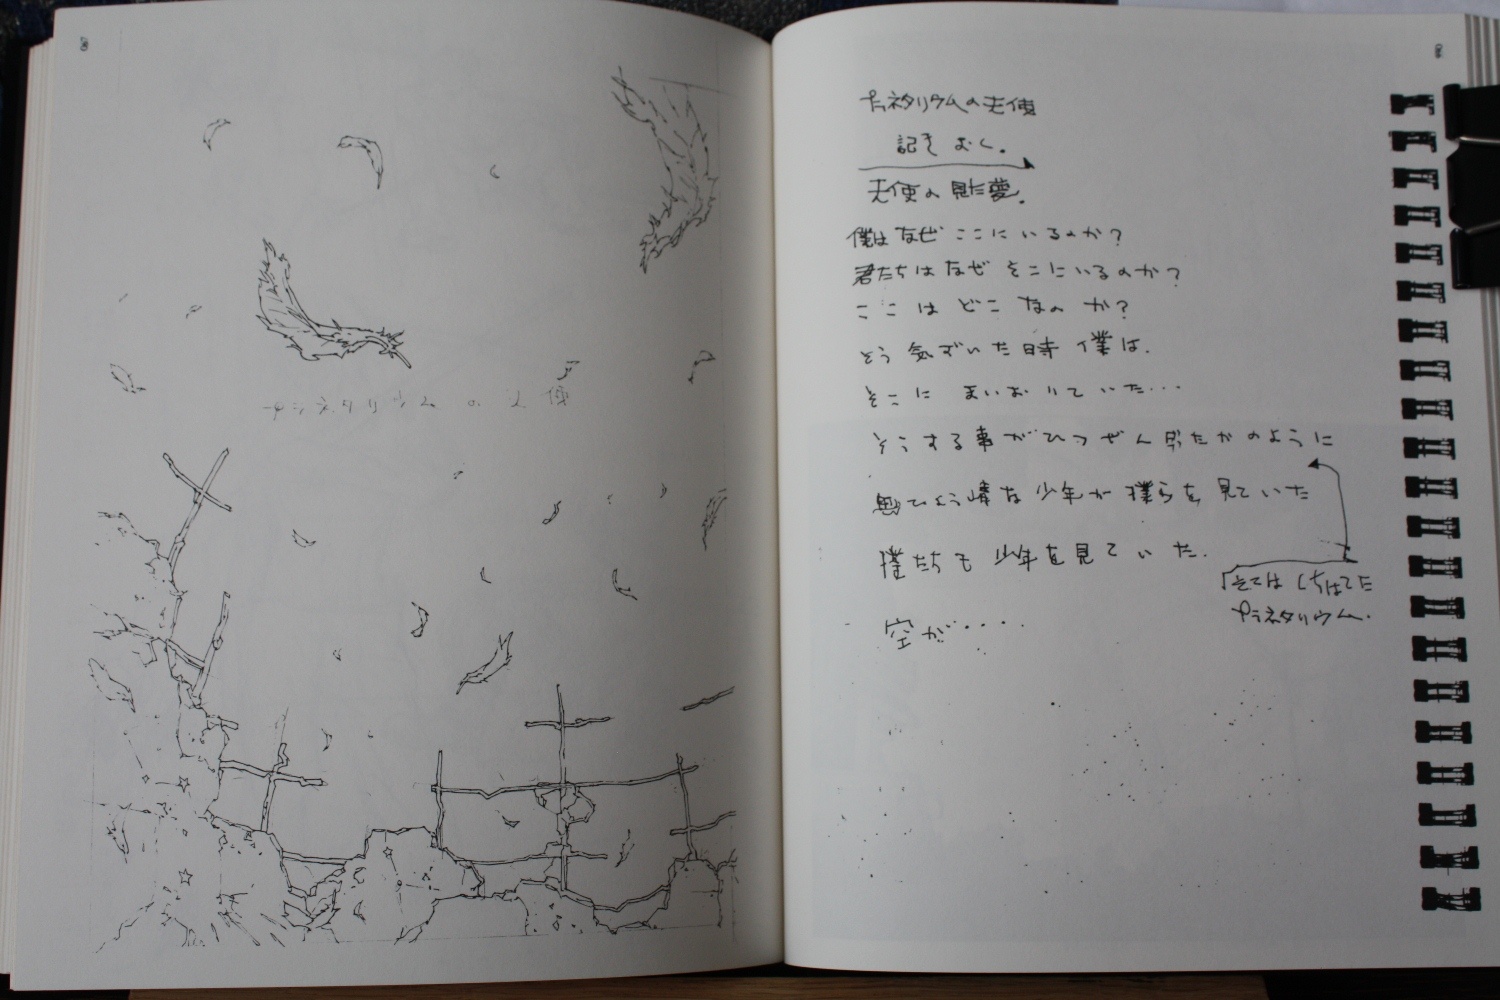 プラネタリウムの天使
プラネタリウムの天使
記をおく。
天使の見た夢。
僕はなぜここにいるのか?
君たちはなぜそこにいるのか?
ここはどこなのか?
そう気づいた時僕は、
そこにまいおりていた…
そうする事がひつぜんだったかのように
無ひょう情な少年が僕らを見ていた
僕たちも少年を見ていた.
空が・・・・
そこはくちはてた
プラネタリウム.